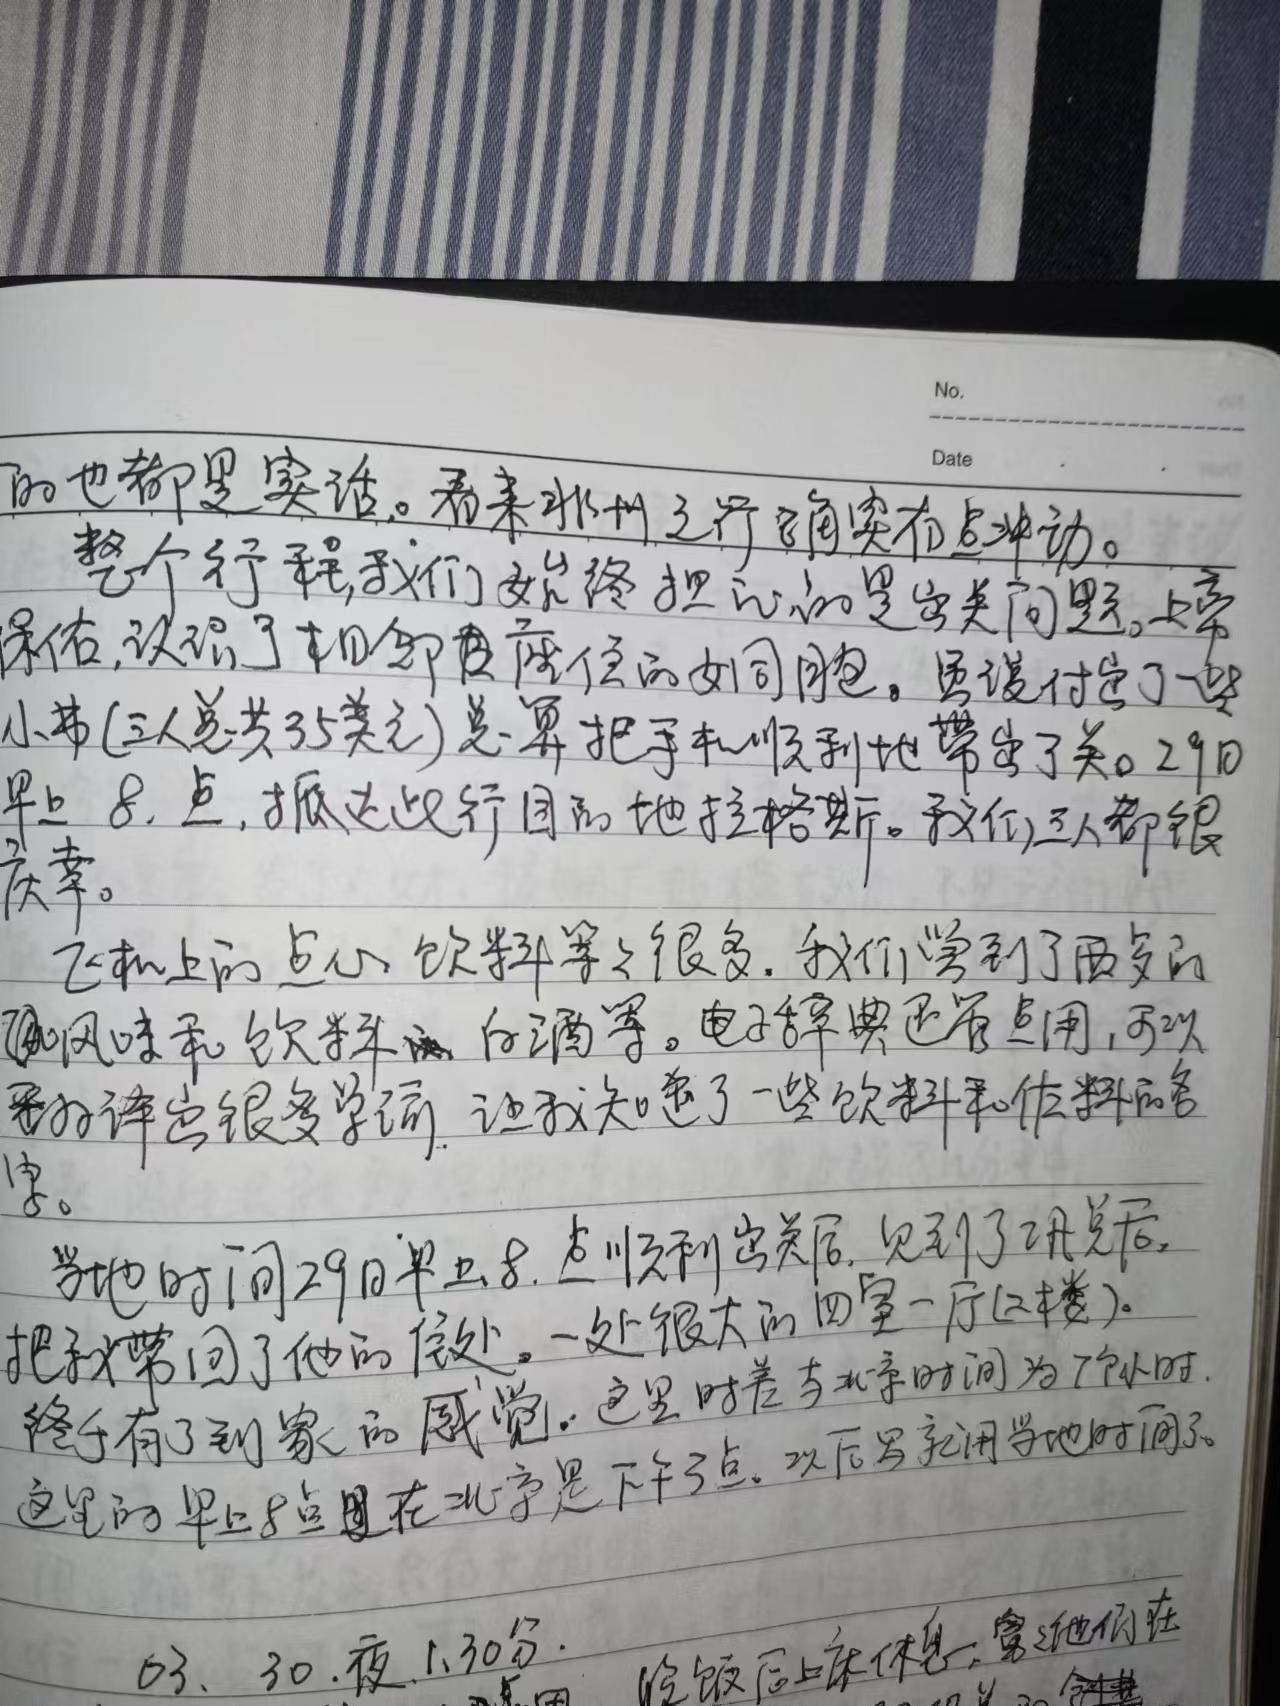 No.
Date
的也都是实话。看来非州之行确实有点冲动。
整个行程,我们始终担心的是出关问题。上帝
保佑,认识了相邻座位的女同胞。虽说付出了一些
小费(三人总共35美元)总算把手机顺利地带出了关。29日
早上8.点,抵达此行目的地拉格斯。我们三人都很
庆幸。
飞机上的点心、饮料等等很多.我们尝到了西多的
风味和饮料 白酒等。电子辞典还管点用,可以
译出很多单词.让我知道了一些饮料和佐料的名
字。
当地时间29日早上8.点顺利出关后.见到了 总后.
把我带回了他的住处。一处很大的四室一厅(2楼)。
终于有了到家的感觉。这里时差与北京时间为7个小时.
这里的早上8点在北京是下午3点。以后写就用当地时间了。
03、30.夜1.30分.
饭后上床休息, 他们在